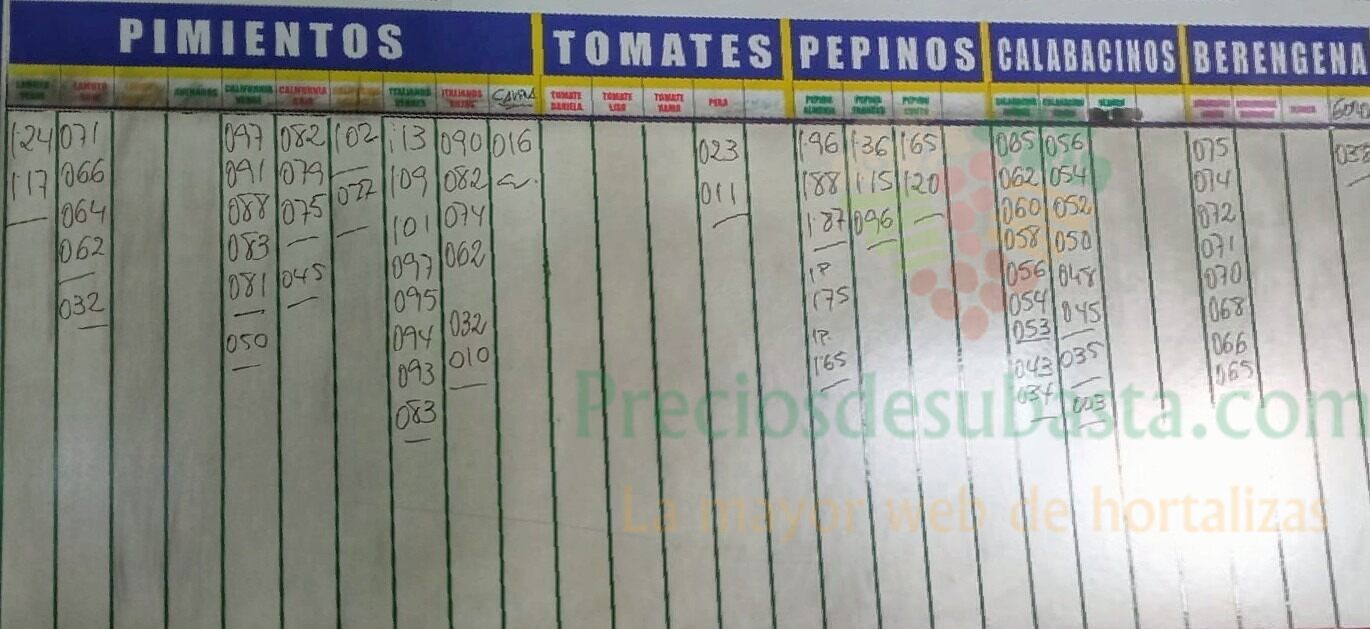 PIMIENTOS TOMATES PEPINOS CALABACINOS BERENGENA
LAMUYO ROJO CALIFORNIA VERDE CALIFORNIA ROJO ITALIANOS VERDES ITALIANOS ROJOS TOMATE DANIELA TOMATE LISO TOMATE RAMA PERA PEPINO ALMERIA PEPINO FRANCES PEPINO CORTO
1'24 071 097 082 102 1'13 090 016 023 1'96 1'36 1'65 065 056 075
1'17 066 091 079 109 082 011 1'88 1'15 1'20 062 054 074
064 088 075 101 074 1'87 096 060 052 072
062 083 097 062 1P 058 050 071
032 081 045 095 032 1'75 056 048 070
050 094 010 1P. 054 045 068
093 1'65 053 035 066
083 043 003 065
034
Preciosdesubasta.com
La mayor web de hortalizas